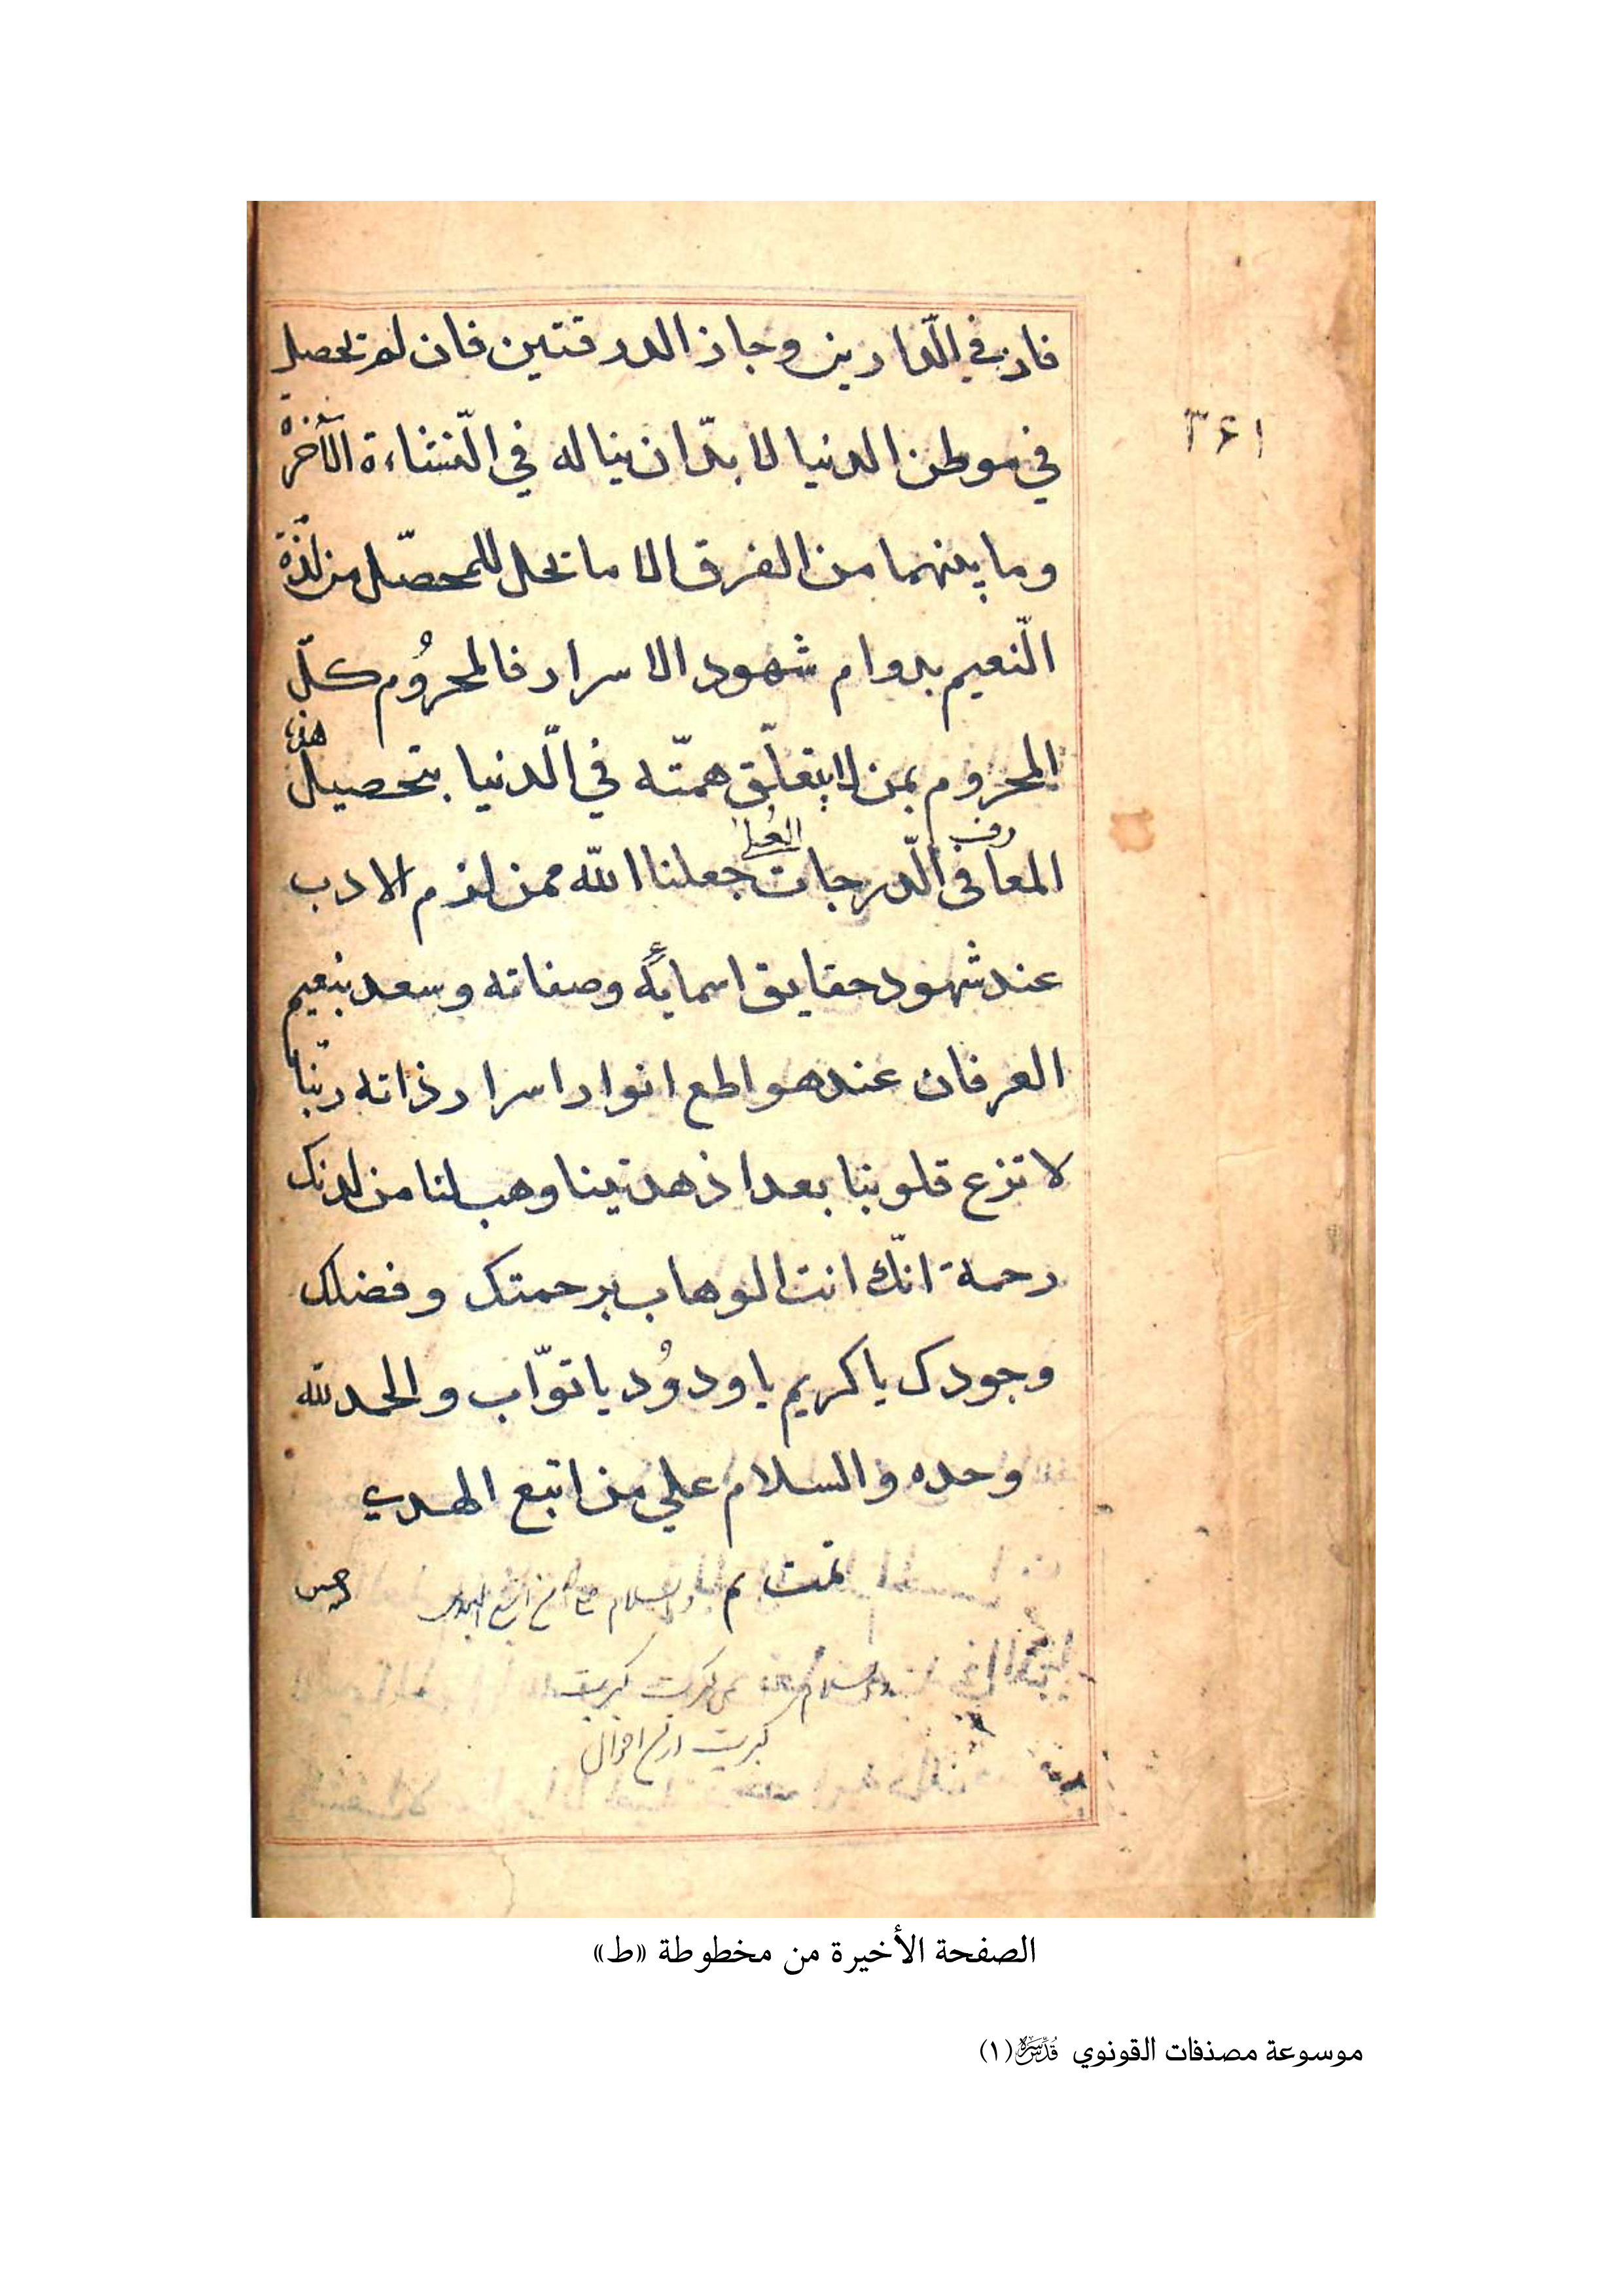 فاز في الّدارين وجاز الدرقتين فان لم تحصل
في موطن الدنيا لا بدّ ان يناله في النّشاءة الآخرة
وما بينهما من الفرق الا ما تخل للمحصّل من لذة
النّعيم بدوام شهود الاسرار فالمحرُوم كلّ
المحروم بمن لا يتعلّق همتّه في الّدنيا بتحصيل هذه
المعارف في الّدرجات العُلى جعلنا الله ممن لزم الادب
عند شهود حقايق اسمايهٔ وصفاته وسعد بنعيم
العرفان عند هوالمع انوار اسرار ذاته ربّنا
لا تزع قلوبنا بعد اذ هديتنا وهب لنا من لدنک
رحمة انّك انت الوهاب برحمتک وفضلک
وجودک يا كريم يا ودوُد يا توّاب والحمد لله
وحده والسلام علي من اتبع الهدي
تمت م والسلام على من اتبع الهدى
كبريت
كبريت
٣۶١
الصفحة الأخيرة من مخطوطة «ط»
موسوعة مصنفات القونوي قُدِّسَ سِرُّه (١)